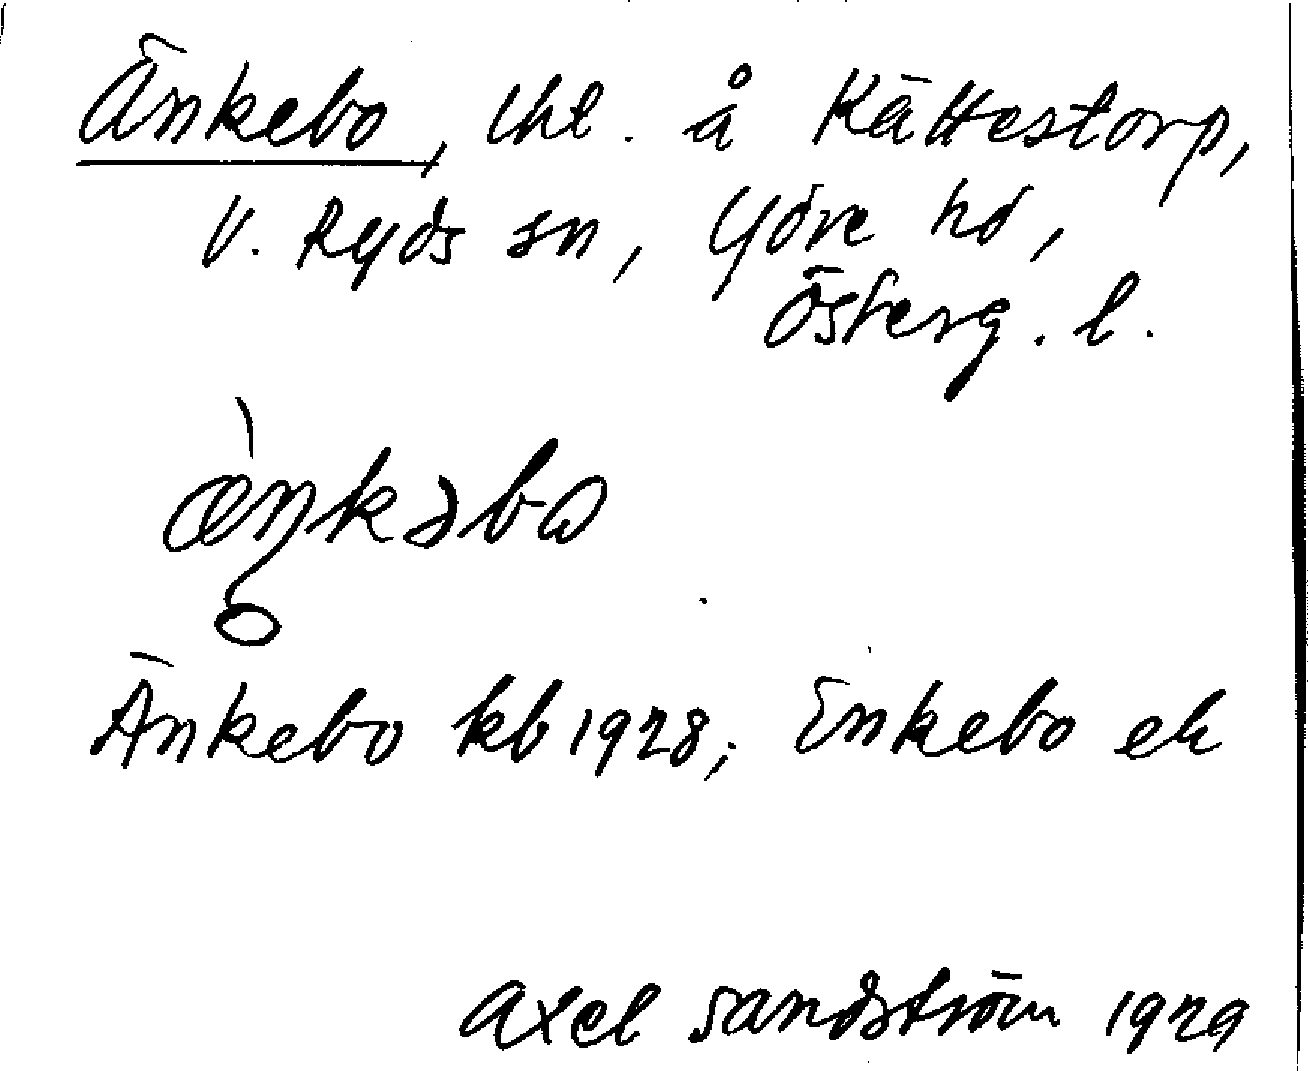 Änkebo, lht. å Kättestorp,
V. Ryds sn, Ydre hd,
Österg. l.
æ̀ŋkəbω
Änkebo kb 1928; Enkebo ek
Axel Sandström 1929